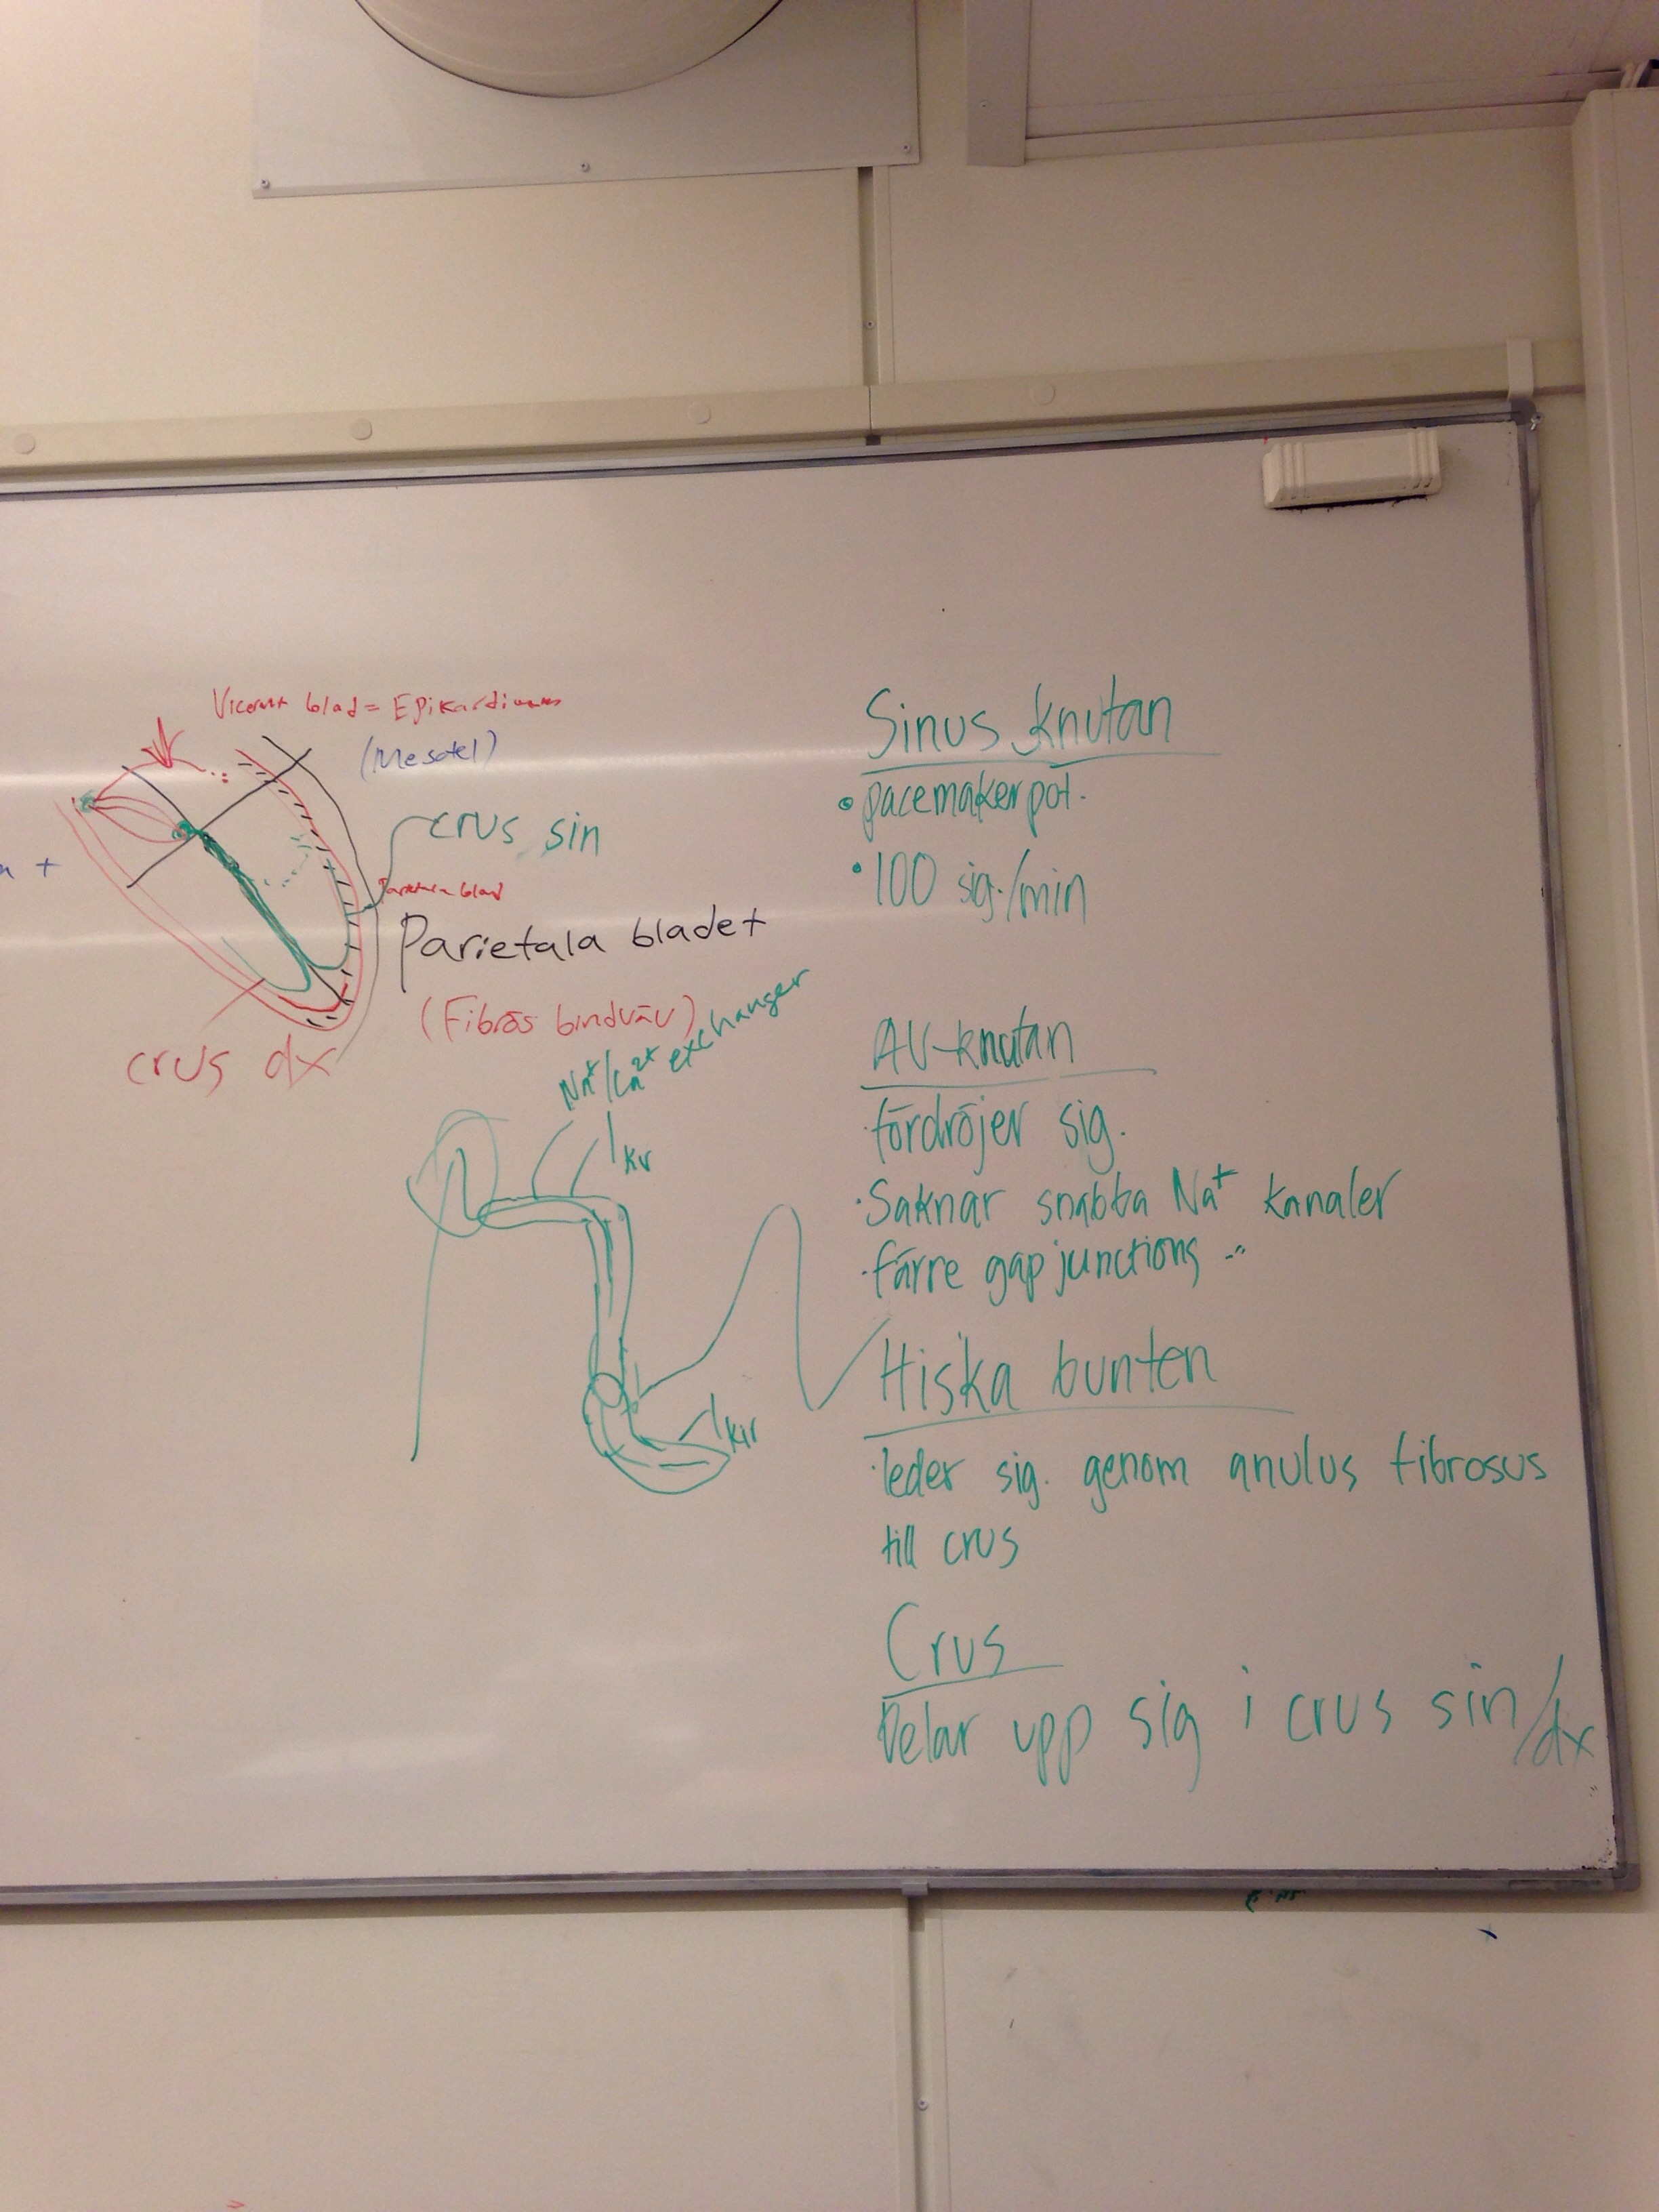 blad = Epikardium
(Mesotel)
crus sin
Parietala blad
Parietala bladet
(Fibrös bindväv)
crus dx
Na+/Ca2+ exchanger
IKr
IKir
Sinus knutan
• pacemaker pot.
• 100 sig./min
AV-knutan
· fördröjer sig.
· Saknar snabba Na+ kanaler
· färre gap junctions
Hiska bunten
· leder sig. genom anulus fibrosus
till crus
Crus
Delar upp sig i crus sin/dx